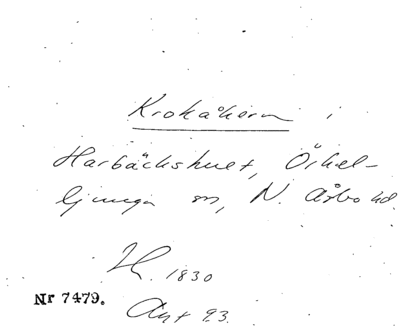 Krokåkern i
Harbäckshult, Örkel-
ljunga sn, N. Åsbo hd.
H. 1830
Nr 7479.
Ant 93.